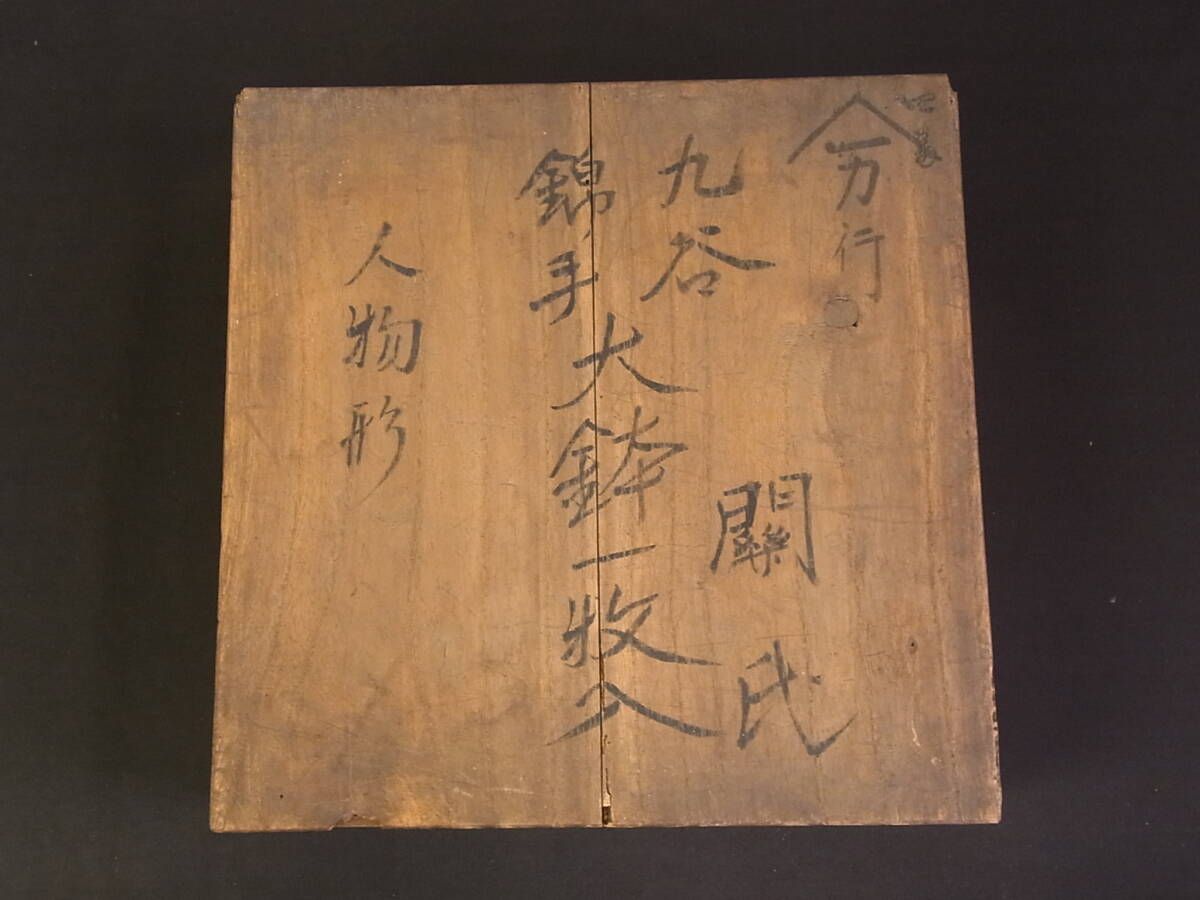 万行
九谷
錦手
大鉢一枚入
關氏
人物形